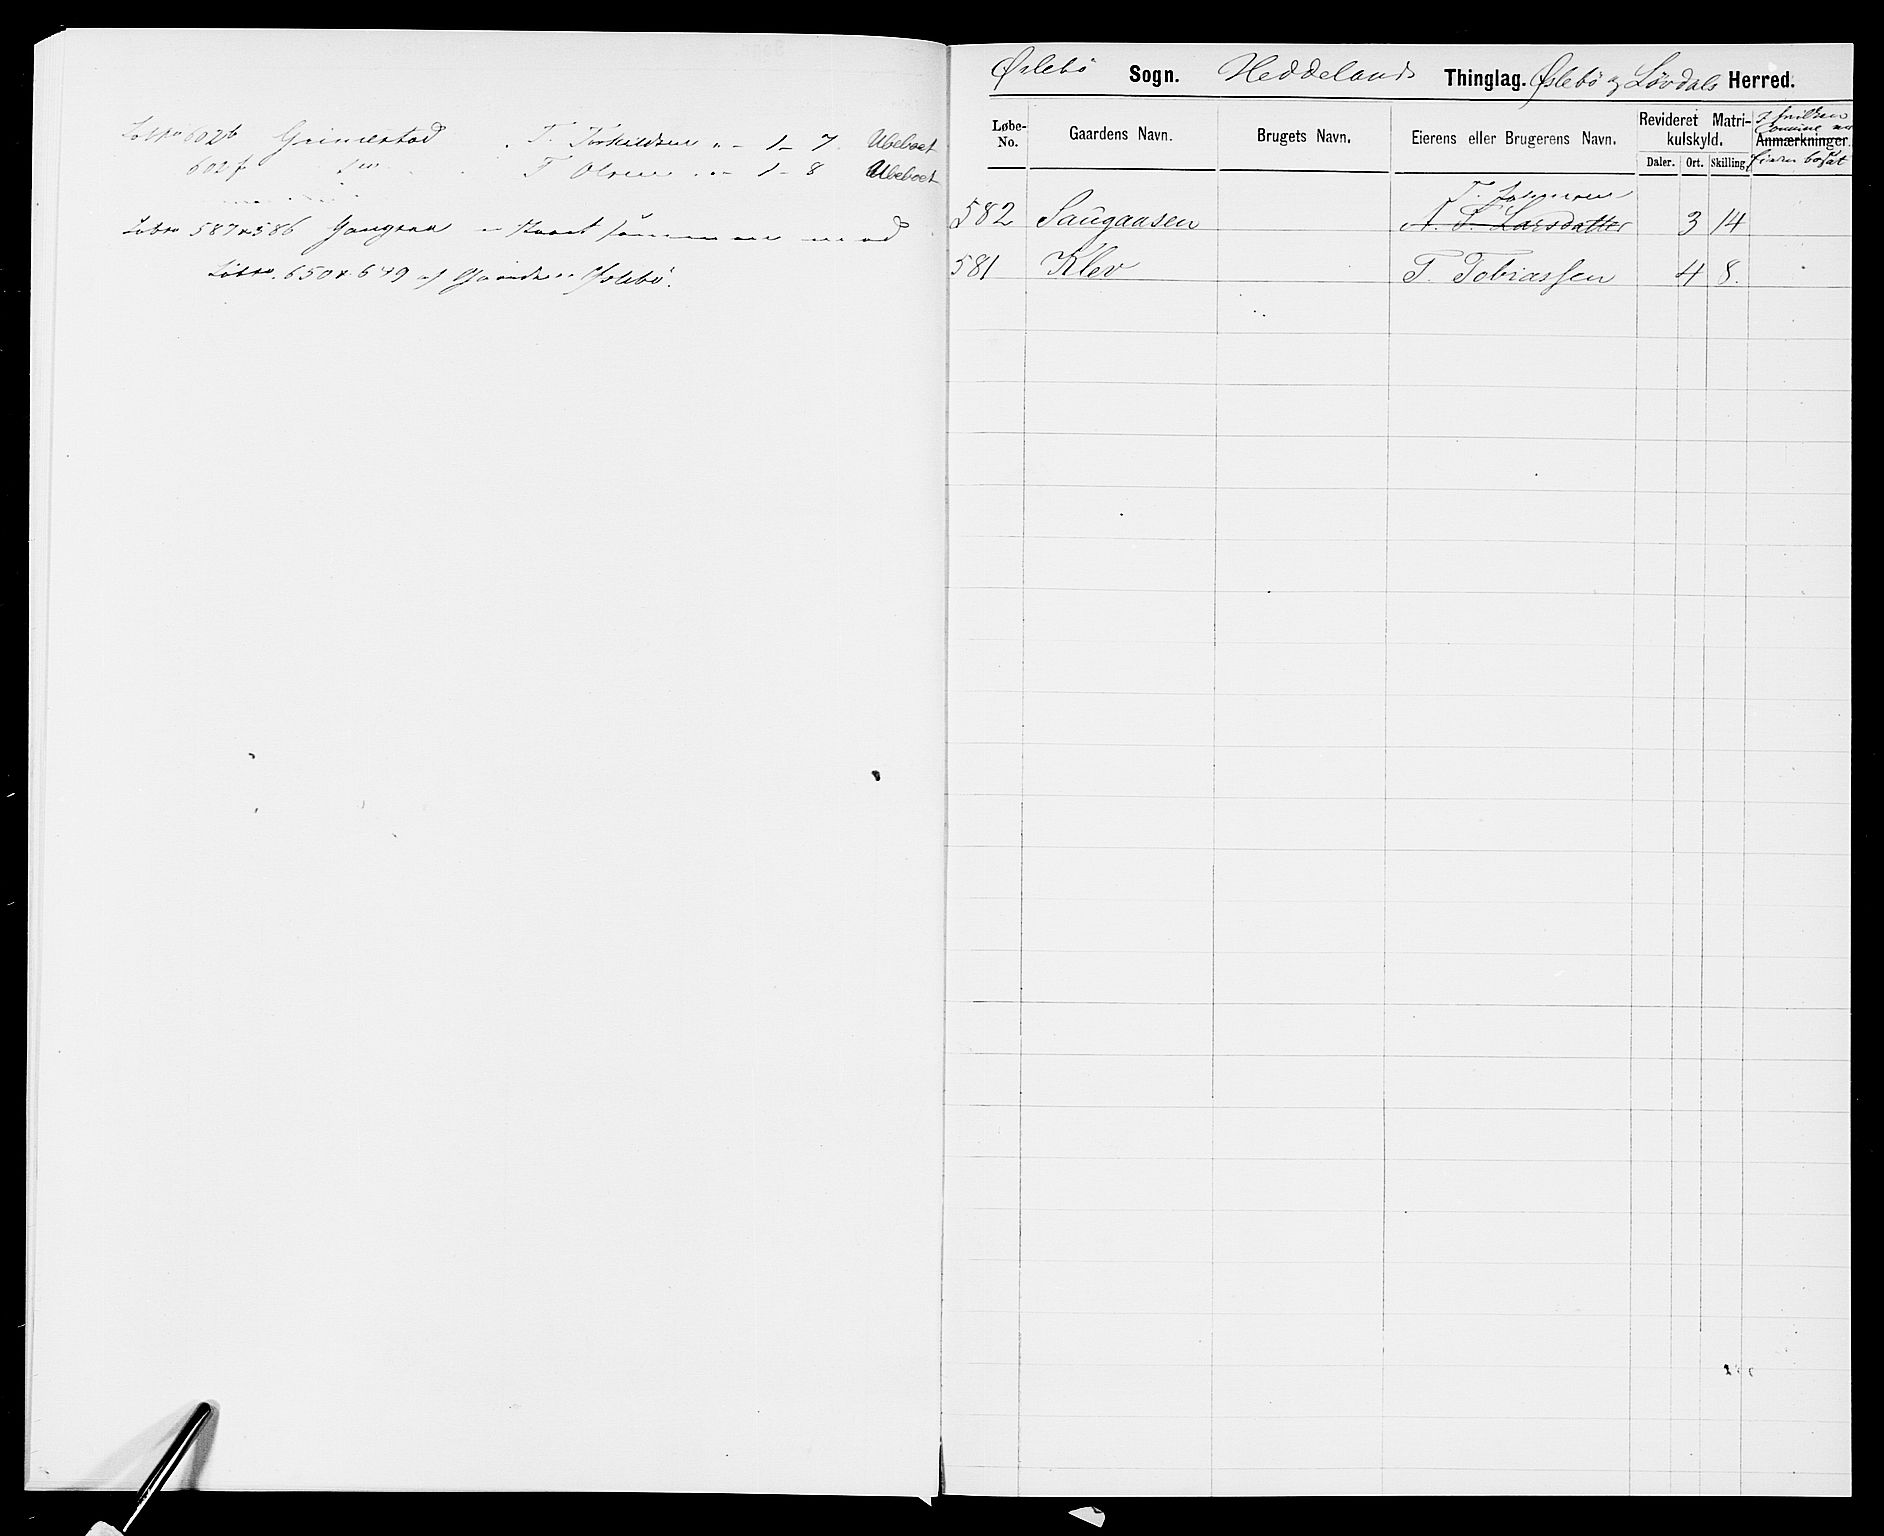 Løbno 602b Grimestad T. Torkildsen " - 1 - 7 Ubeboet
602f T. Olsen " - 1 - 8 Ubeboet
Løbno 587 & 586
Løbno. 650 & 649 af Øslebö.
Øslebö Sogn. Heddelands Thinglag. Øslebö og Løvdals Herred.
Løbe-No. Gaardens Navn. Brugets Navn. Eierens eller Brugerens Navn. Revideret Matrikulskyld. Anmærkninger.
Daler. Ort. Skilling.
I hvilken
Eieren bosat
582 Saugaasen A. T. Larsdatter 3 14
581 Klev T. Tobiassen 4 8.